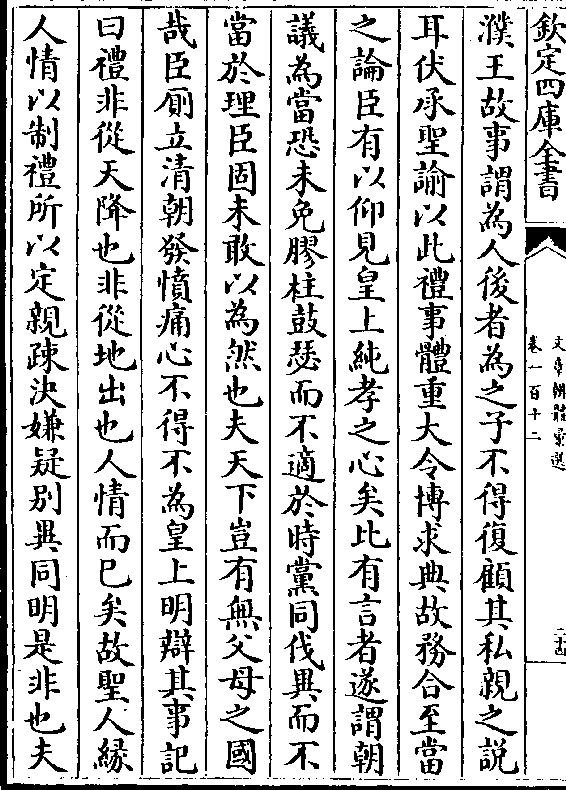 欽定四庫全書
文章辨體彙選
卷一百十二
二十四
濮王故事謂為人後者為之子不得復顧其私親之説
耳伏承聖諭以此禮事體重大令博求典故務合至當
之論臣有以仰見皇上純孝之心矣比有言者遂謂朝
議為當恐未免膠柱鼓瑟而不適於時黨同伐異而不
當於理臣固未敢以為然也夫天下豈有無父母之國
哉臣厠立清朝發憤痛心不得不為皇上明辯其事記
曰禮非從天降也非從地出也人情而已矣故聖人縁
人情以制禮所以定親疎決嫌疑别異同明是非也夫